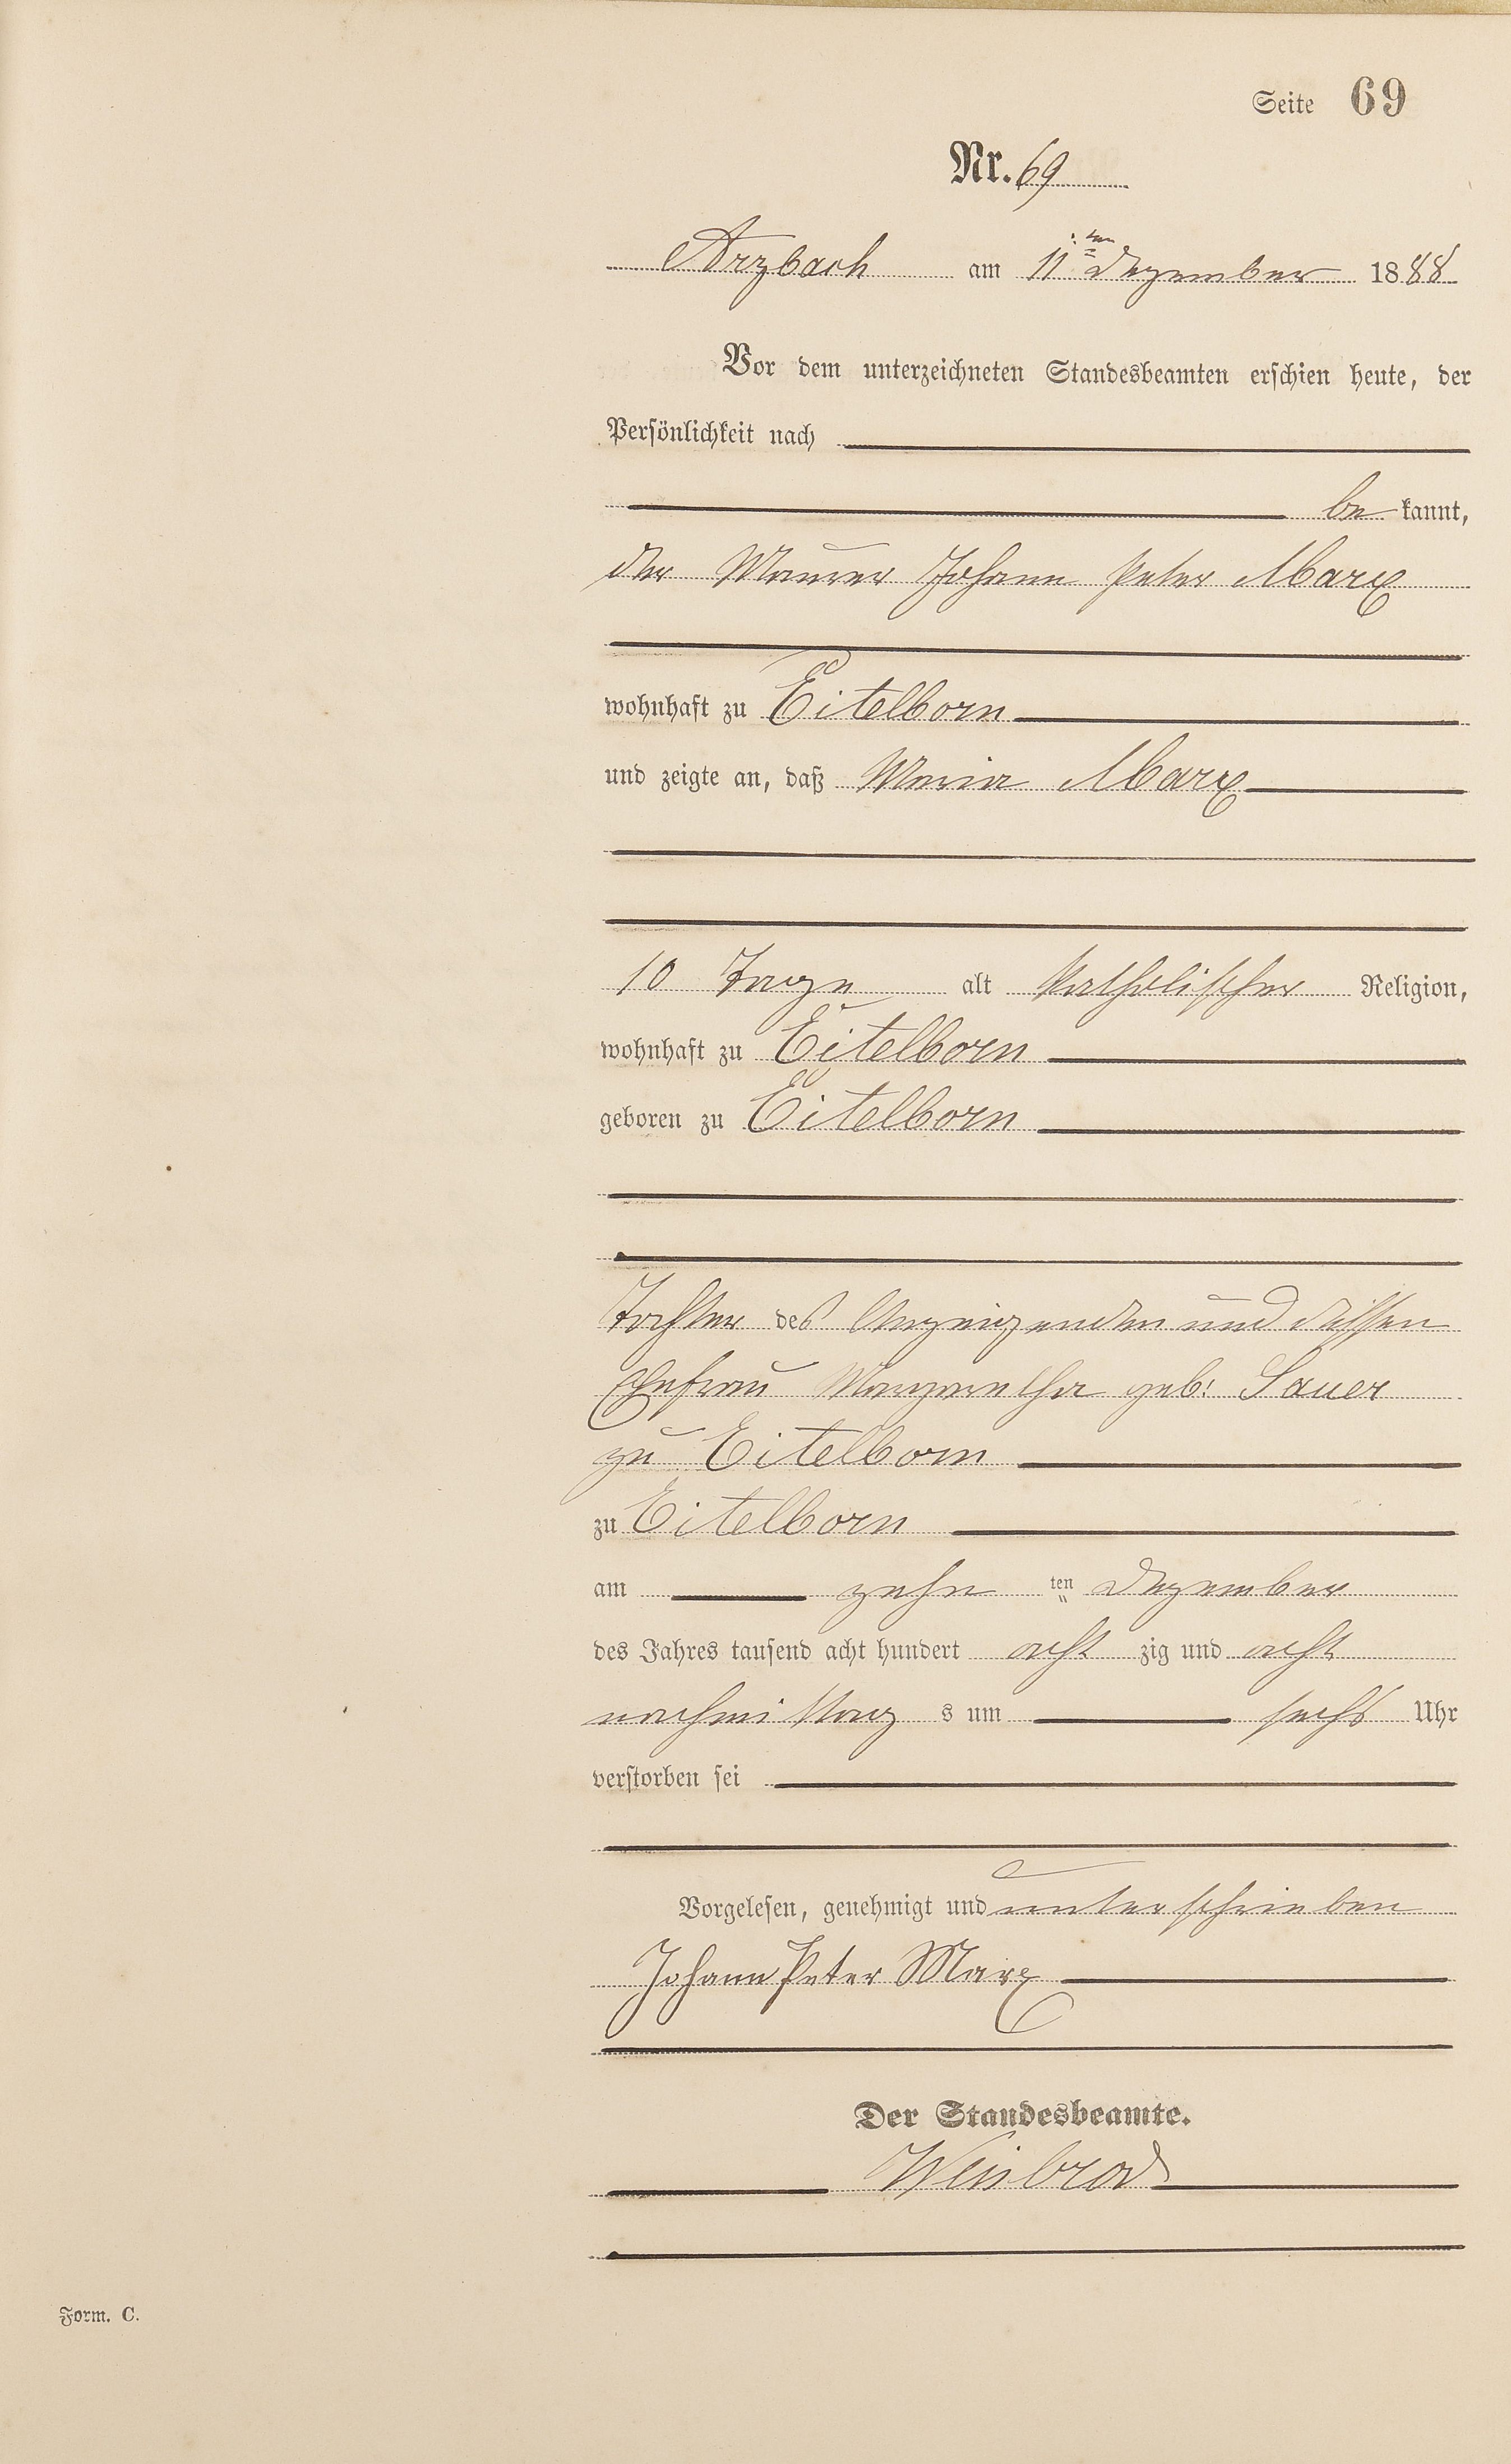 Seite 69
Nr. 69
Arzbach am 11ten Dezember 1888
Vor dem unterzeichneten Standesbeamten erschien heute, der
Persönlichkeit nach
be kannt,
der Maurer Johann Peter Marx
wohnhaft zu Eitelborn
und zeigte an, daß Maria Marx
10 Tage alt katholischer Religion,
wohnhaft zu Eitelborn
geboren zu Eitelborn
Tochter des Anzeigenden und dessen
Ehefrau Margaretha geb: Sauer
zu Eitelborn
zu Eitelborn
am zehn ten Dezember
des Jahres tausend acht hundert acht zig und acht
nachmittag s um sechs Uhr
verstorben sei
Vorgelesen, genehmigt und unterschrieben
Johann Peter Marx
Der Standesbeamte.
Weisbrod
Form. C.